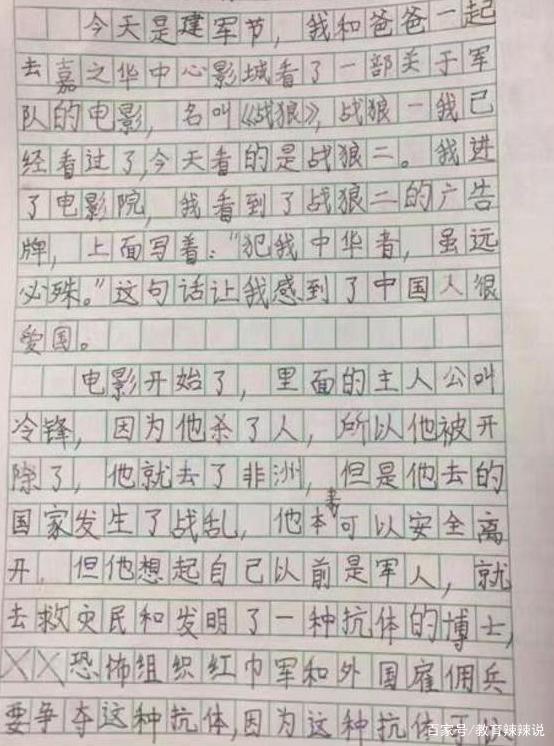 今天是建军节，我和爸爸一起
去嘉之华中心影城看了一部关于军
队的电影，名叫《战狼》，战狼一我已
经看过了，今天看的是战狼二。我进
了电影院，我看到了战狼二的广告
牌，上面写着：“犯我中华者，虽远
必殊。”这句话让我感到了中国人很
爱国。
电影开始了，里面的主人公叫
冷锋，因为他杀了人，所以他被开
除了，他就去了非洲，但是他去的
国家发生了战乱，他本来可以安全离
开，但他想起自己以前是军人，就
去救灾民和发明了一种抗体的博士，
恐怖组织红巾军和外国雇佣兵
要争夺这种抗体，因为这种抗体可
百家号/教育辣辣说